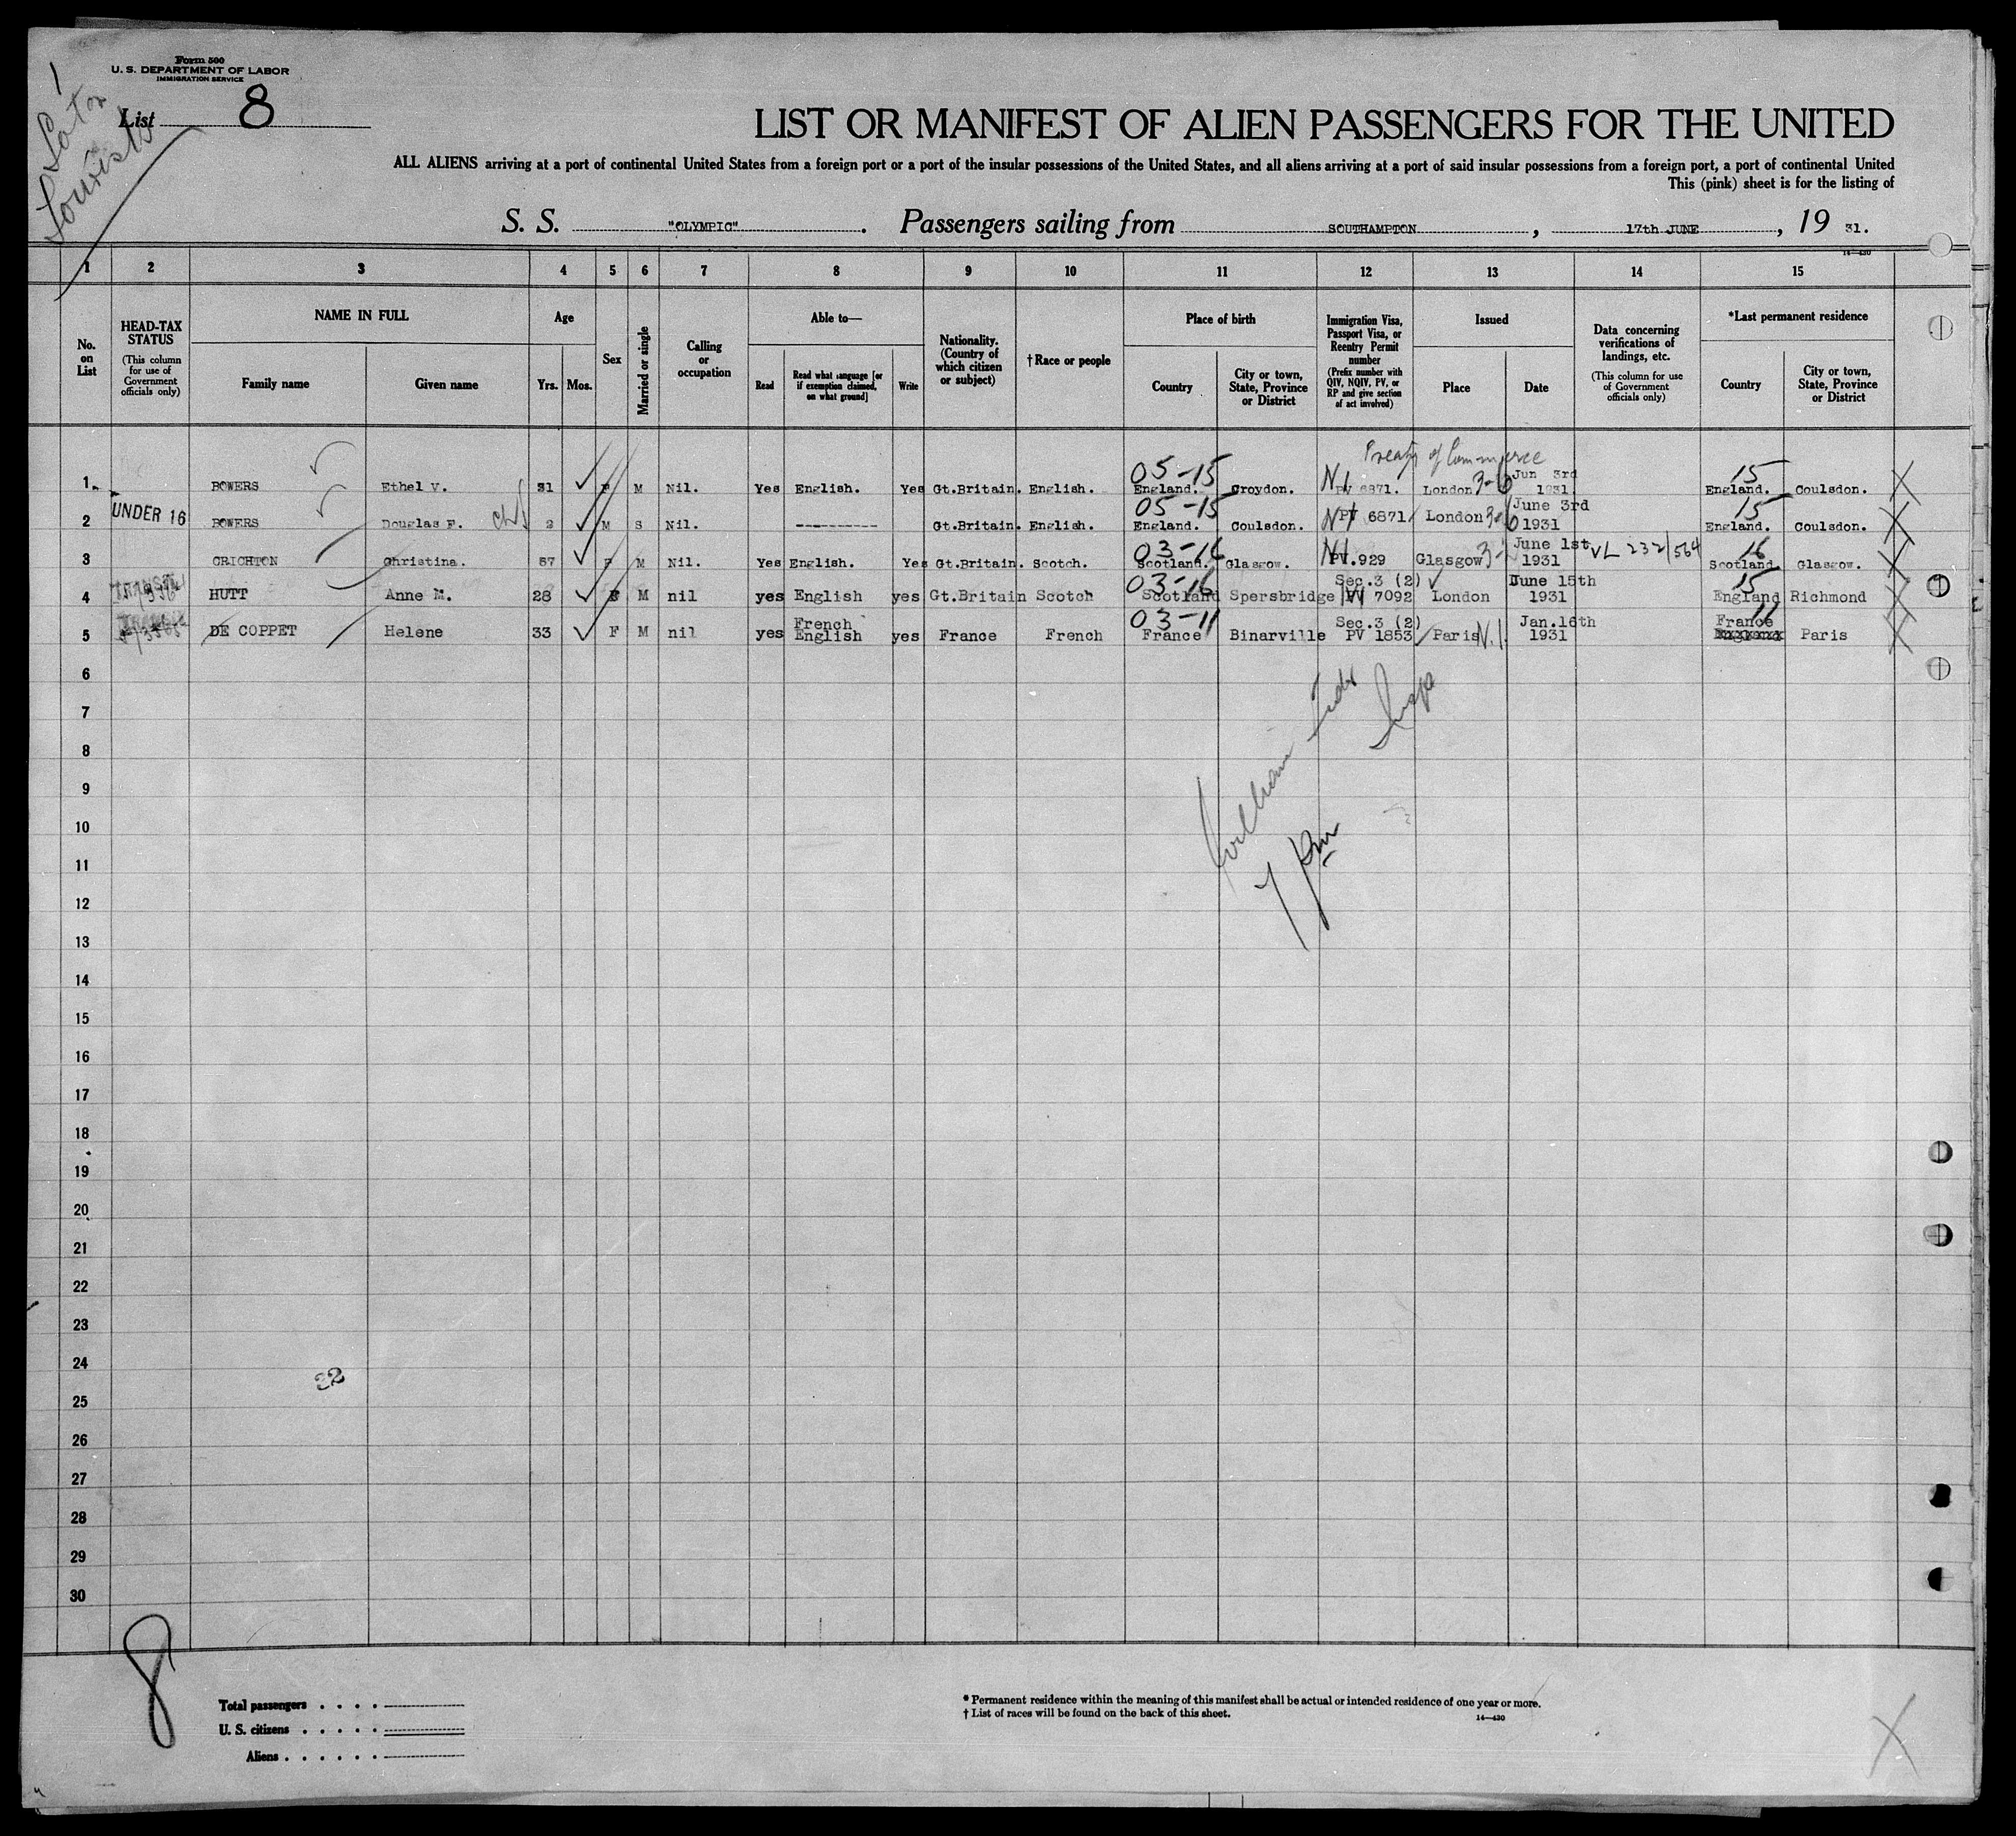 Form 500
U. S. DEPARTMENT OF LABOR
IMMIGRATION SERVICE
List 8
LIST OR MANIFEST OF ALIEN PASSENGERS FOR THE UNITED
ALL ALIENS arriving at a port of continental United States from a foreign port or a port of the insular possessions of the United States, and all aliens arriving at a port of said insular possessions from a foreign port, a port of continental United
This (pink) sheet is for the listing of
S. S. "OLYMPIC". Passengers sailing from SOUTHAMPTON, 17th JUNE, 19 31.
14—430
1 2 3 4 5 6 7 8 9 10 11 12 13 14 15
No. on List
HEAD-TAX STATUS
(This column for use of Government officials only)
NAME IN FULL
Family name
Given name
Age
Yrs. Mos.
Sex
Married or single
Calling or occupation
Able to—
Read
Read what language [or if exemption claimed, on what ground]
Write
Nationality. (Country of which citizen or subject)
†Race or people
Place of birth
Country
City or town, State, Province or District
Immigration Visa, Passport Visa, or Reentry Permit number
(Prefix number with QIV, NQIV, PV, or RP and give section of act involved)
Issued
Place
Date
Data concerning verifications of landings, etc.
(This column for use of Government officials only)
*Last permanent residence
Country
City or town, State, Province or District
Treaty of Commerce
05-15 15
1 BOWERS Ethel V. 31 F M Nil. Yes English. Yes Gt.Britain. English. England. Croydon. PV 6871. London Jun 3rd 1931. England. Coulsdon.
05-15 15
2 UNDER 16 BOWERS Douglas F. 2 M S Nil. ---------- Gt.Britain. English. England. Coulsdon. PV 6871 London June 3rd 1931 England. Coulsdon.
03-16 16
3 CRICHTON Christina. 57 F M Nil. Yes English. Yes Gt.Britain. Scotch. Scotland. Glasgow. PV.929 Glasgow June 1st 1931 VL 232/564 Scotland Glasgow.
03-16 15
4 HUTT Anne M. 28 F M nil yes English yes Gt.Britain Scotch Scotland Spersbridge Sec.3 (2) 7092 London June 15th 1931 England Richmond
03-11 11
5 DE COPPET Helene 33 F M nil yes French English yes France French France Binarville Sec.3 (2) PV 1853 Paris Jan.16th 1931 France Paris
6
7
8
9
10
11
12
13
14
15
16
17
18
19
20
21
22
23
24
25
26
27
28
29
30
William
Insp
22
8
Total passengers
U. S. citizens
Aliens
* Permanent residence within the meaning of this manifest shall be actual or intended residence of one year or more.
† List of races will be found on the back of this sheet.
14—430